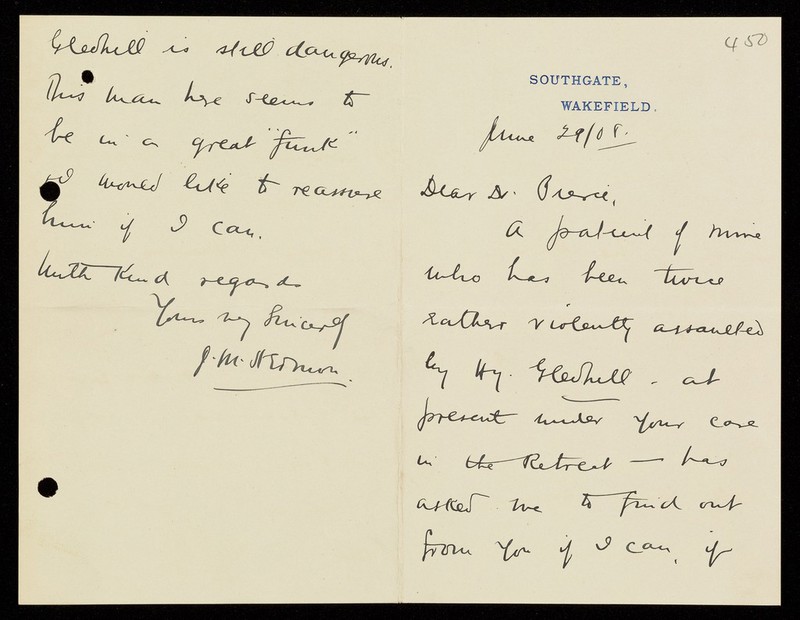 450
SOUTHGATE,
WAKEFIELD.
June 29/08.
Dear Dr. Pierce,
A patient of mine
who has been twice
rather violently assaulted
by Hy. Gledhill - at
present under your care
in the Retreat — has
asked me to find out
from you if I can, if
Gledhill is still dangerous.
This man here seems to
be in a great "funk"
I would like to reassure
him if I can.
With kind regards
Yours very sincerely
J. M.